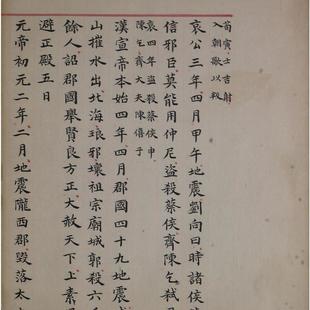 荀寅士吉射
入朝歌以叛
哀公三年四月甲午地震劉向曰時諸侯
信邪臣莫能用仲尼盜殺蔡侯齊陳乞弒
哀四年盜殺蔡侯申
陳乞齊大夫陳僖子
漢宣帝本始四年四月郡國四十九地震或
山摧水出北海琅邪壞祖宗廟城郭殺六
餘人詔郡國舉賢良方正大赦天下上素
避正殿五日
元帝初元二年二月地震隴西郡毀落太